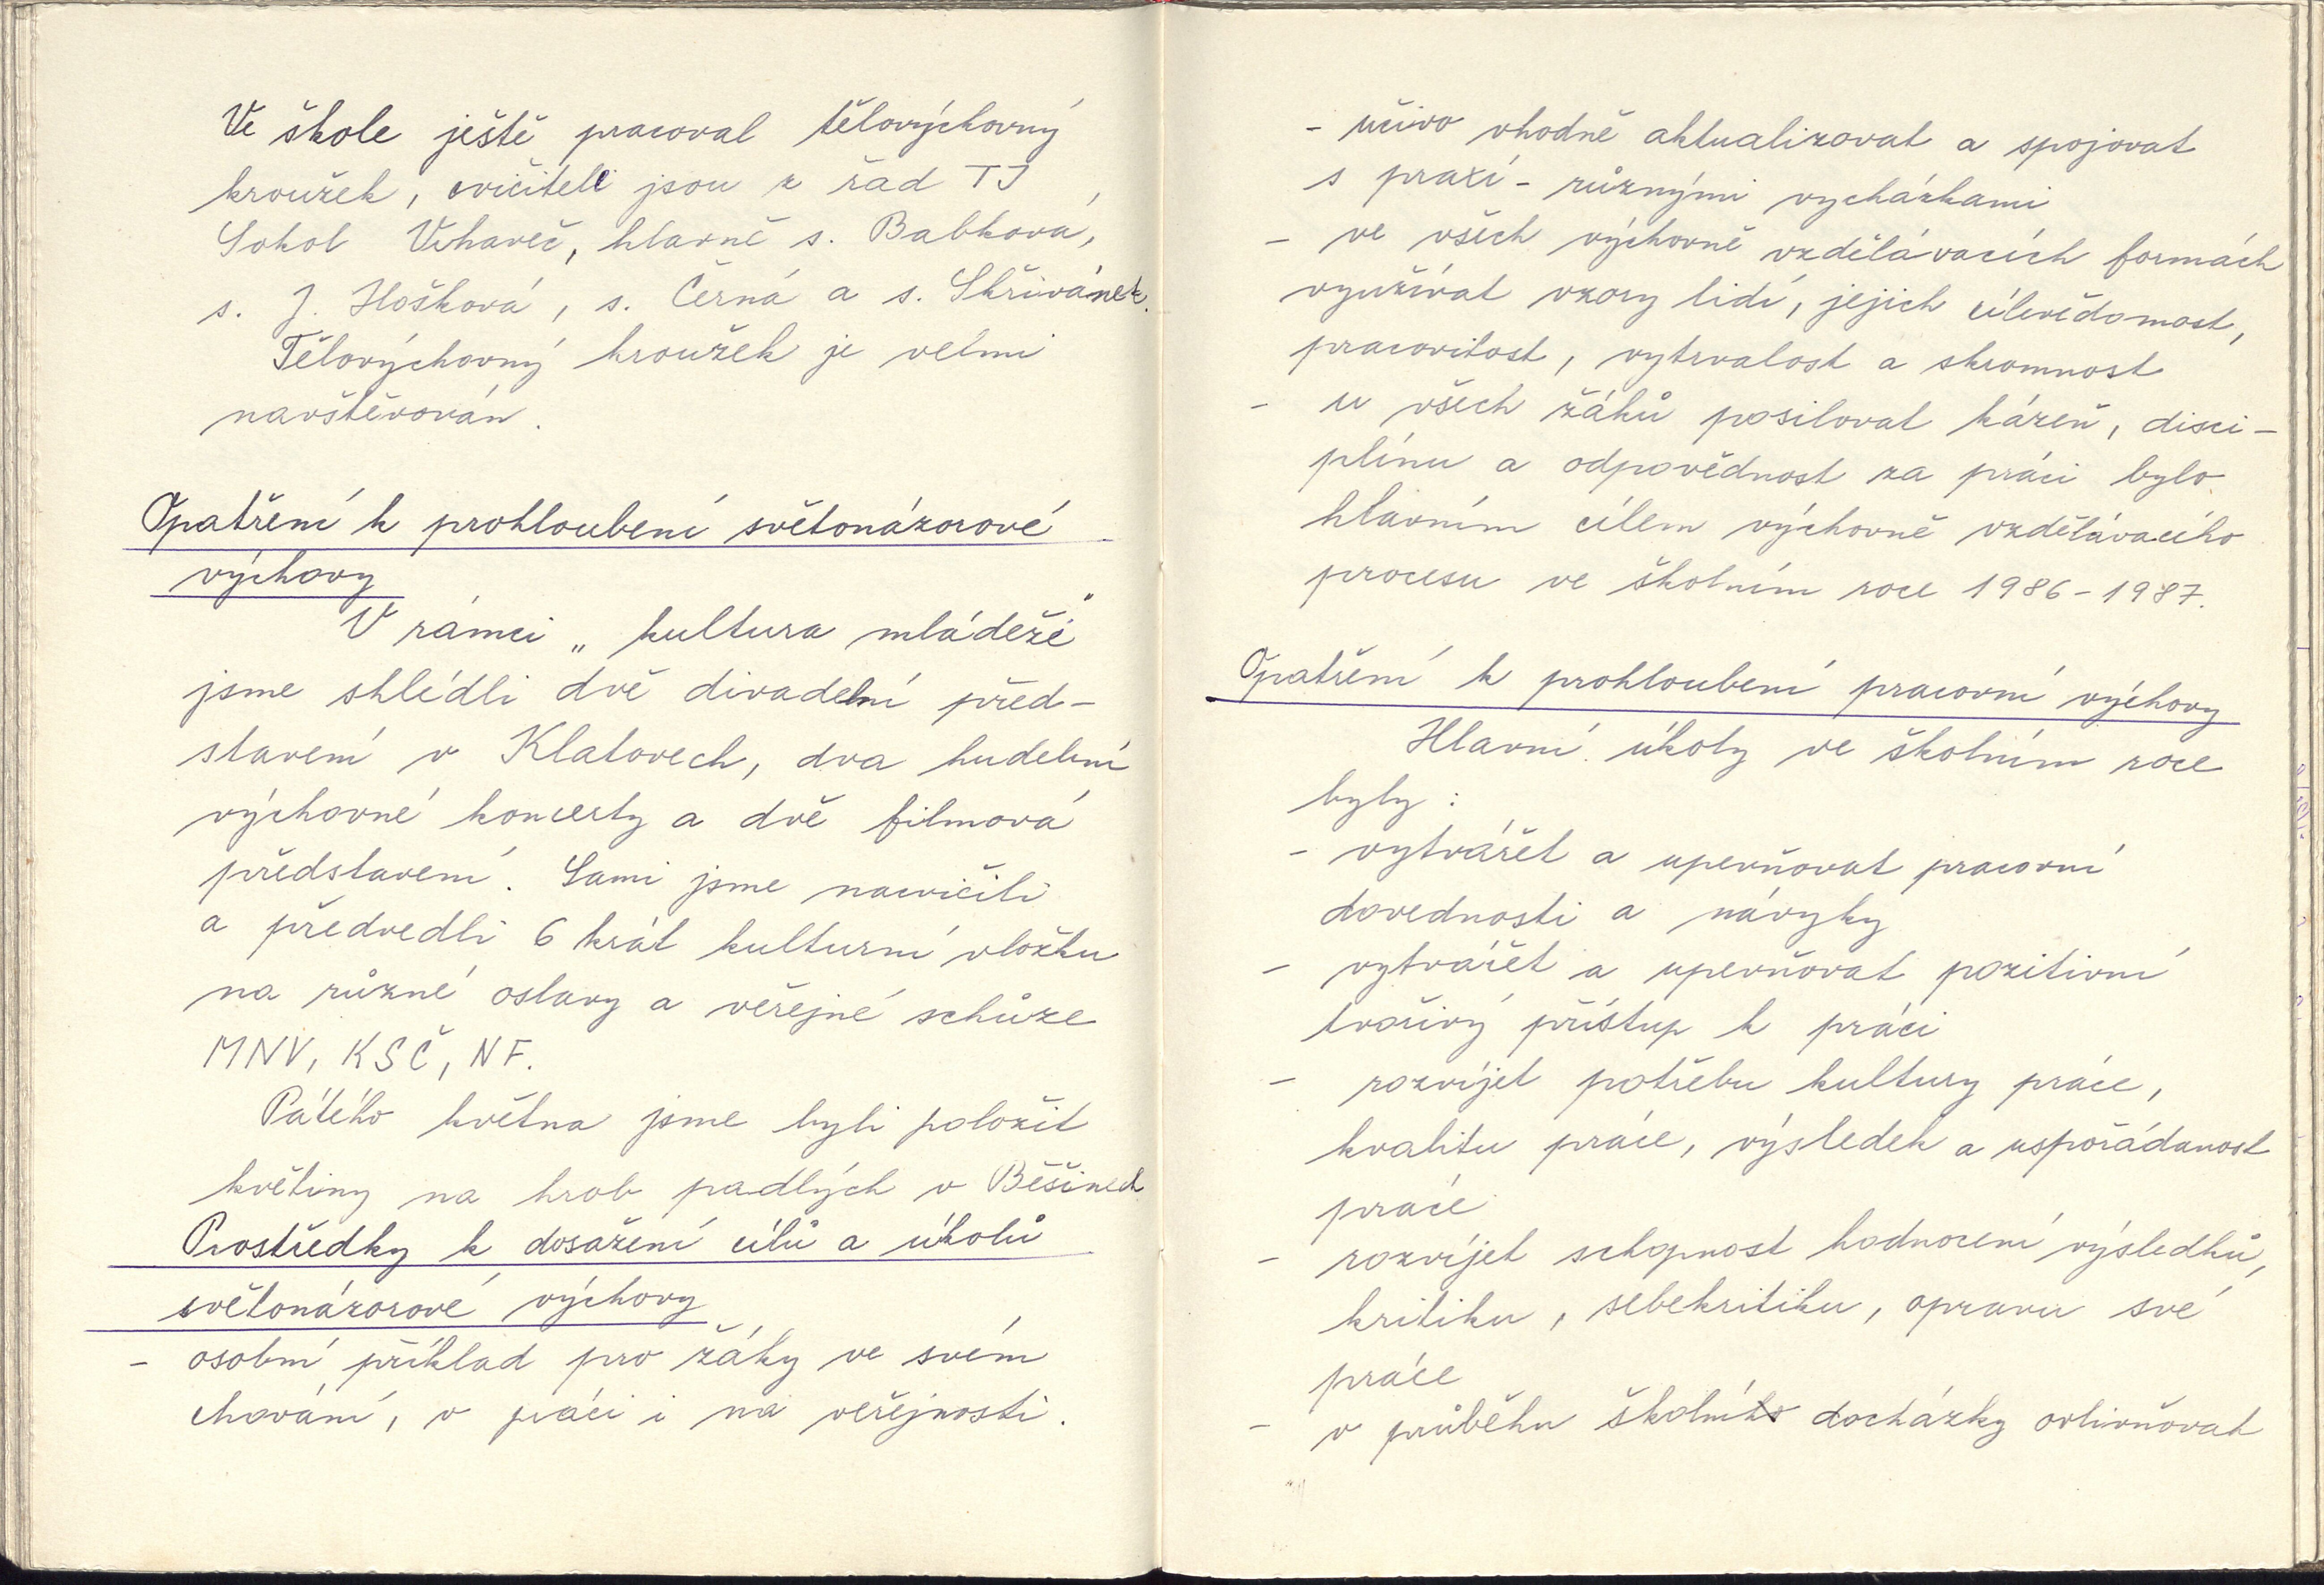 Ve škole ještě pracoval tělovýchovný
kroužek, cvičitelé jsou z řad TJ
Sokol Vrhaveč, hlavně s. Babková,
s. J. Hošková, s. Černá a s. Skřivánek.
Tělovýchovný kroužek je velmi
navštěvován.
Opatření k prohloubení světonázorové
výchovy
V rámci „kultura mládeže"
jsme shlédli dvě divadelní před-
stavení v Klatovech, dva hudební
výchovné koncerty a dvě filmová
představení. Sami jsme nacvičili
a předvedli 6 krát kulturní vložku
na různé oslavy a veřejné schůze
MNV, KSČ, NF.
Pátého května jsme byli položit
květiny na hrob padlých v Běšinech
Prostředky k dosažení cílů a úkolů
světonázorové výchovy
- osobní příklad pro žáky ve svém
chování, v práci i na veřejnosti.
- učivo vhodně aktualizovat a spojovat
s praxí - různými vycházkami
- ve všech výchovně vzdělávacích formách
využívat vzory lidí, jejich cílevědomost,
pracovitost, vytrvalost a skromnost
- u všech žáků posilovat kázeň, disci-
plínu a odpovědnost za práci bylo
hlavním cílem výchovně vzdělávacího
procesu ve školním roce 1986-1987.
Opatření k prohloubení pracovní výchovy
Hlavní úkoly ve školním roce
byly:
- vytvářet a upevňovat pracovní
dovednosti a návyky
- vytvářet a upevňovat pozitivní
tvořivý přístup k práci
- rozvíjet potřebu kultury práce,
kvalitu práce, výsledek a uspořádanost
práce
- rozvíjet schopnost hodnocení výsledků,
kritiku, sebekritiku, opravu své
práce
- v průběhu školní docházky ovlivňovat